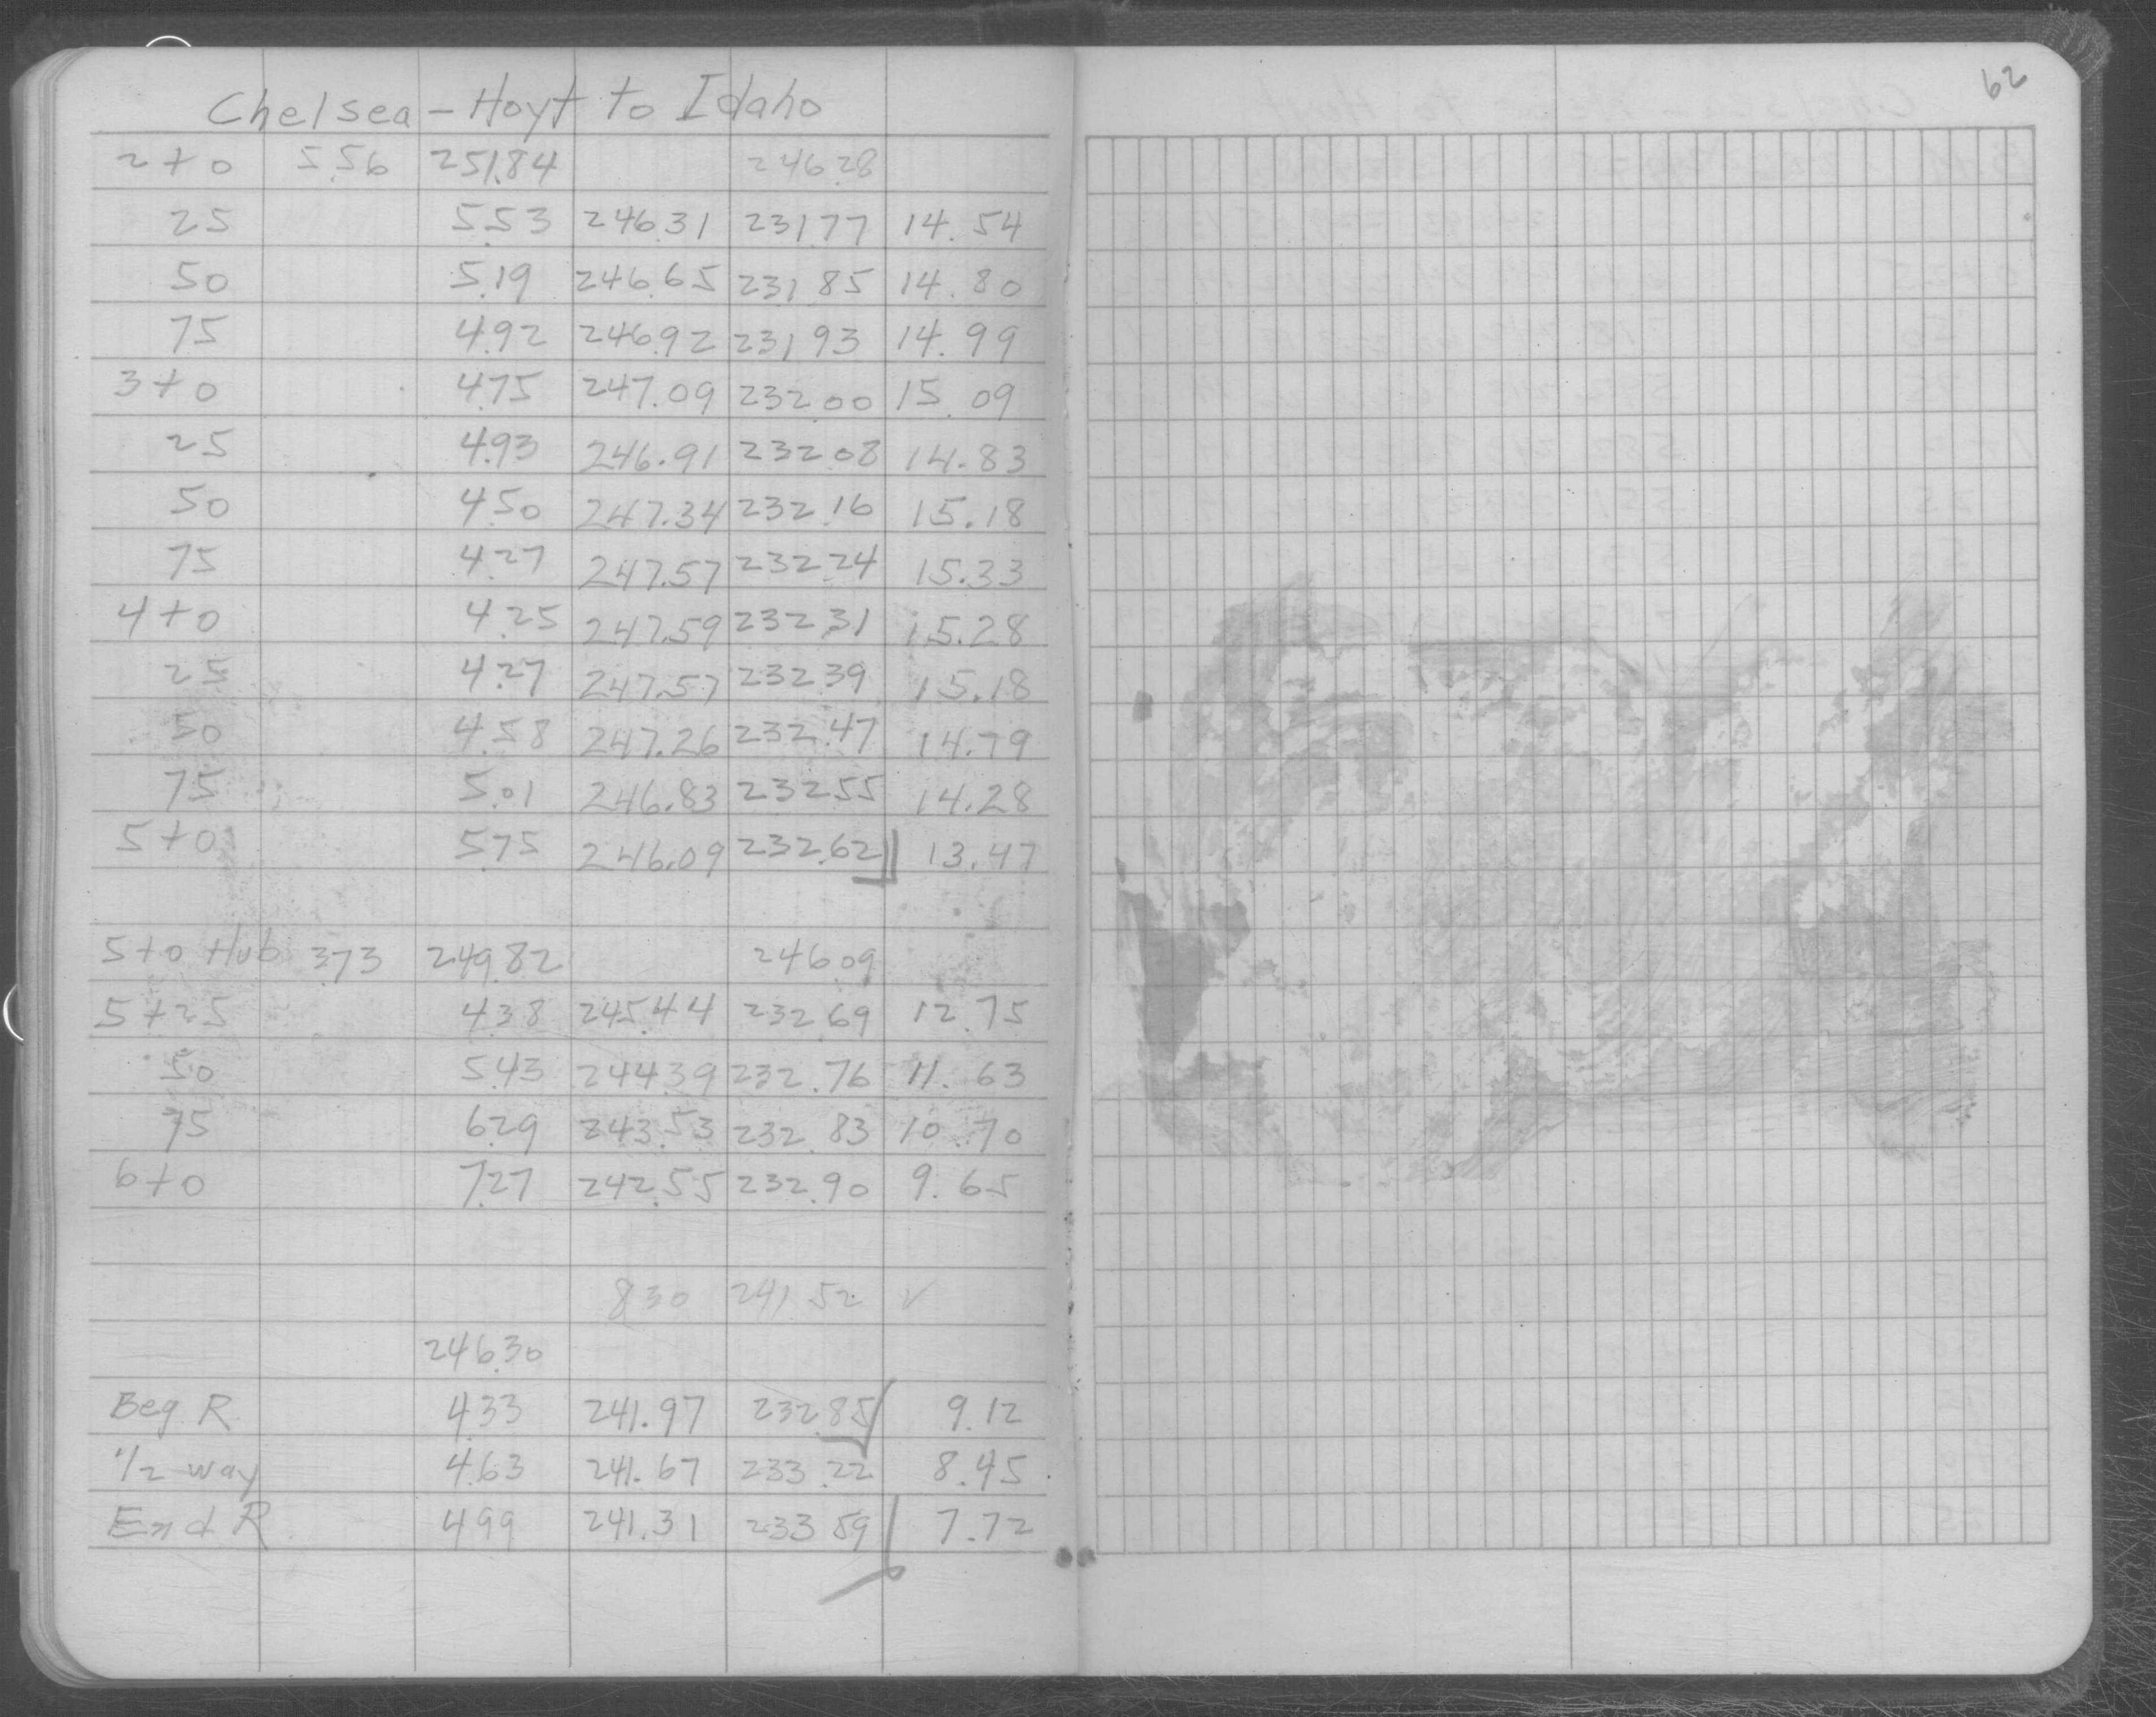 62
Chelsea - Hoyt to Idaho
2+0 5.56 251.84 246.28
25 5.53 246.31 231.77 14.54
50 5.19 246.65 231.85 14.80
75 4.92 246.92 231.93 14.99
3+0 4.75 247.09 232.00 15.09
25 4.93 246.91 232.08 14.83
50 4.50 247.34 232.16 15.18
75 4.27 247.57 232.24 15.33
4+0 4.25 247.59 232.31 15.28
25 4.27 247.57 232.39 15.18
50 4.58 247.26 232.47 14.79
75 5.01 246.83 232.55 14.28
5+0 5.75 246.09 232.62 13.47
5+0 Hub 3.73 249.82 246.09
5+25 4.38 245.44 232.69 12.75
50 5.43 244.39 232.76 11.63
75 6.29 243.53 232.83 10.70
6+0 7.27 242.55 232.90 9.65
830 241.52 ✓
246.30
Beg R 4.33 241.97 232.85 9.12
1/2 way 4.63 241.67 233.22 8.45
End R 4.99 241.31 233.59 7.72